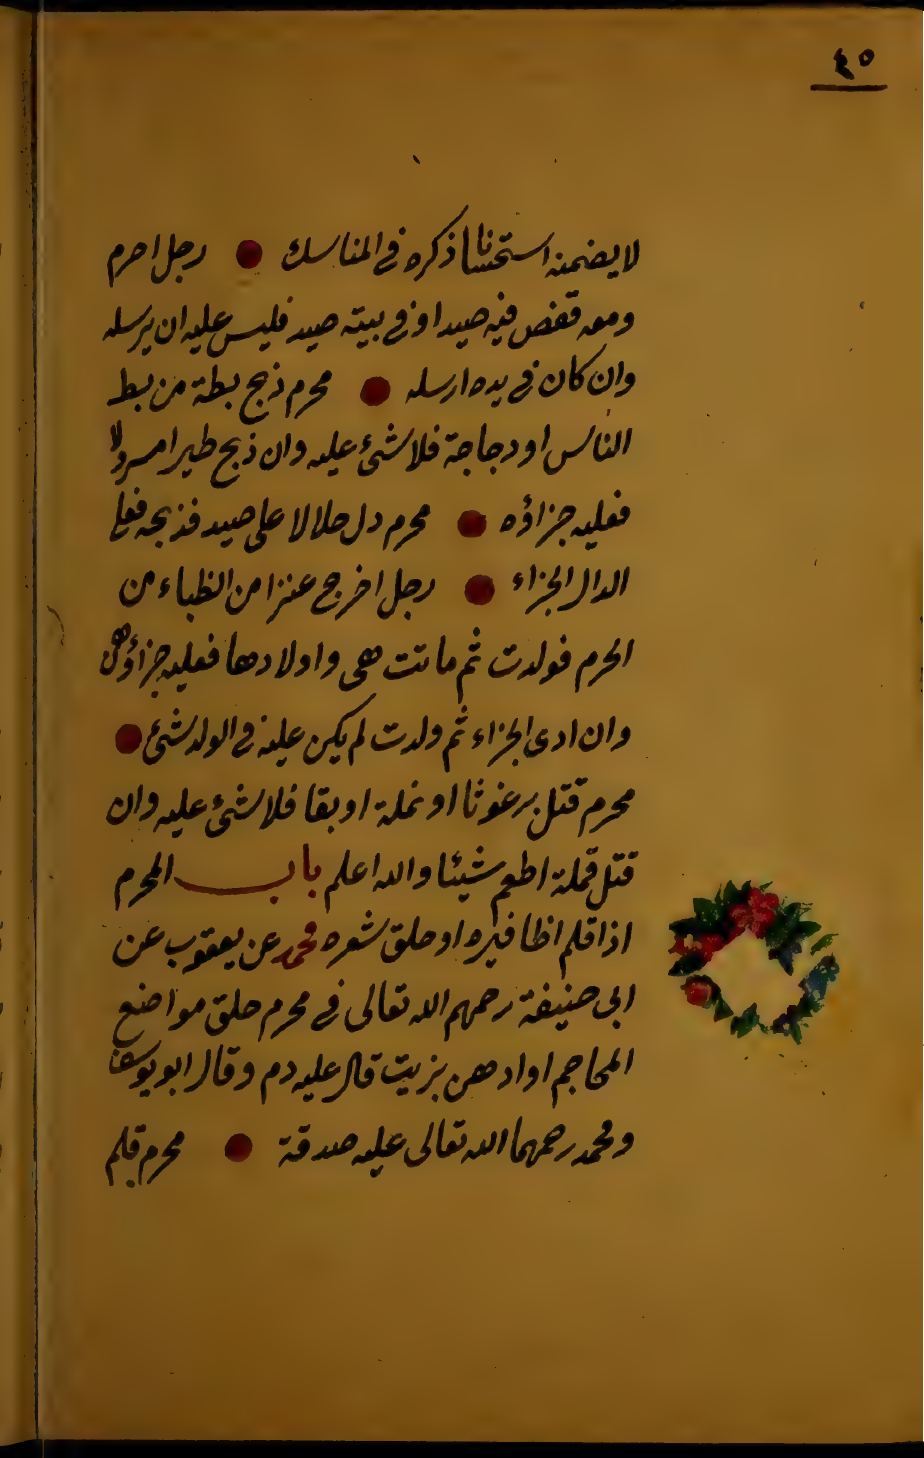 ٤٥
لا يضمنه استحسانا ذكره في المناسك ● رجل احرم
ومعه قفص فيه صيد او في بيته صيد فليس عليه ان يرسله
وان كان في يده ارسله ● محرم ذبح بطة من بط
الناس او دجاجة فلا شئ عليه وان ذبح طيرا مسرولا
فعليه جزاؤه ● محرم دل حلالا على صيد فذبحه فعلى
الدال الجزاء ● رجل اخرج عنزا من الظباء من
الحرم فولدت ثم ماتت هى واولادها فعليه جزاؤهن
وان ادى الجزاء ثم ولدت لم يكن عليه في الولد شئ ●
محرم قتل برغوثا او نملة او بقا فلا شئ عليه وان
قتل قملة اطعم شيئا والله اعلم باب المحرم
اذا قلم اظافيره او حلق شعره محمد عن يعقوب عن
ابى حنيفة رحمهم الله تعالى في محرم حلق مواضع
المحاجم او ادهن بزيت قال عليه دم وقال ابو يوسف
ومحمد رحمهما الله تعالى عليه صدقة ● محرم قلم